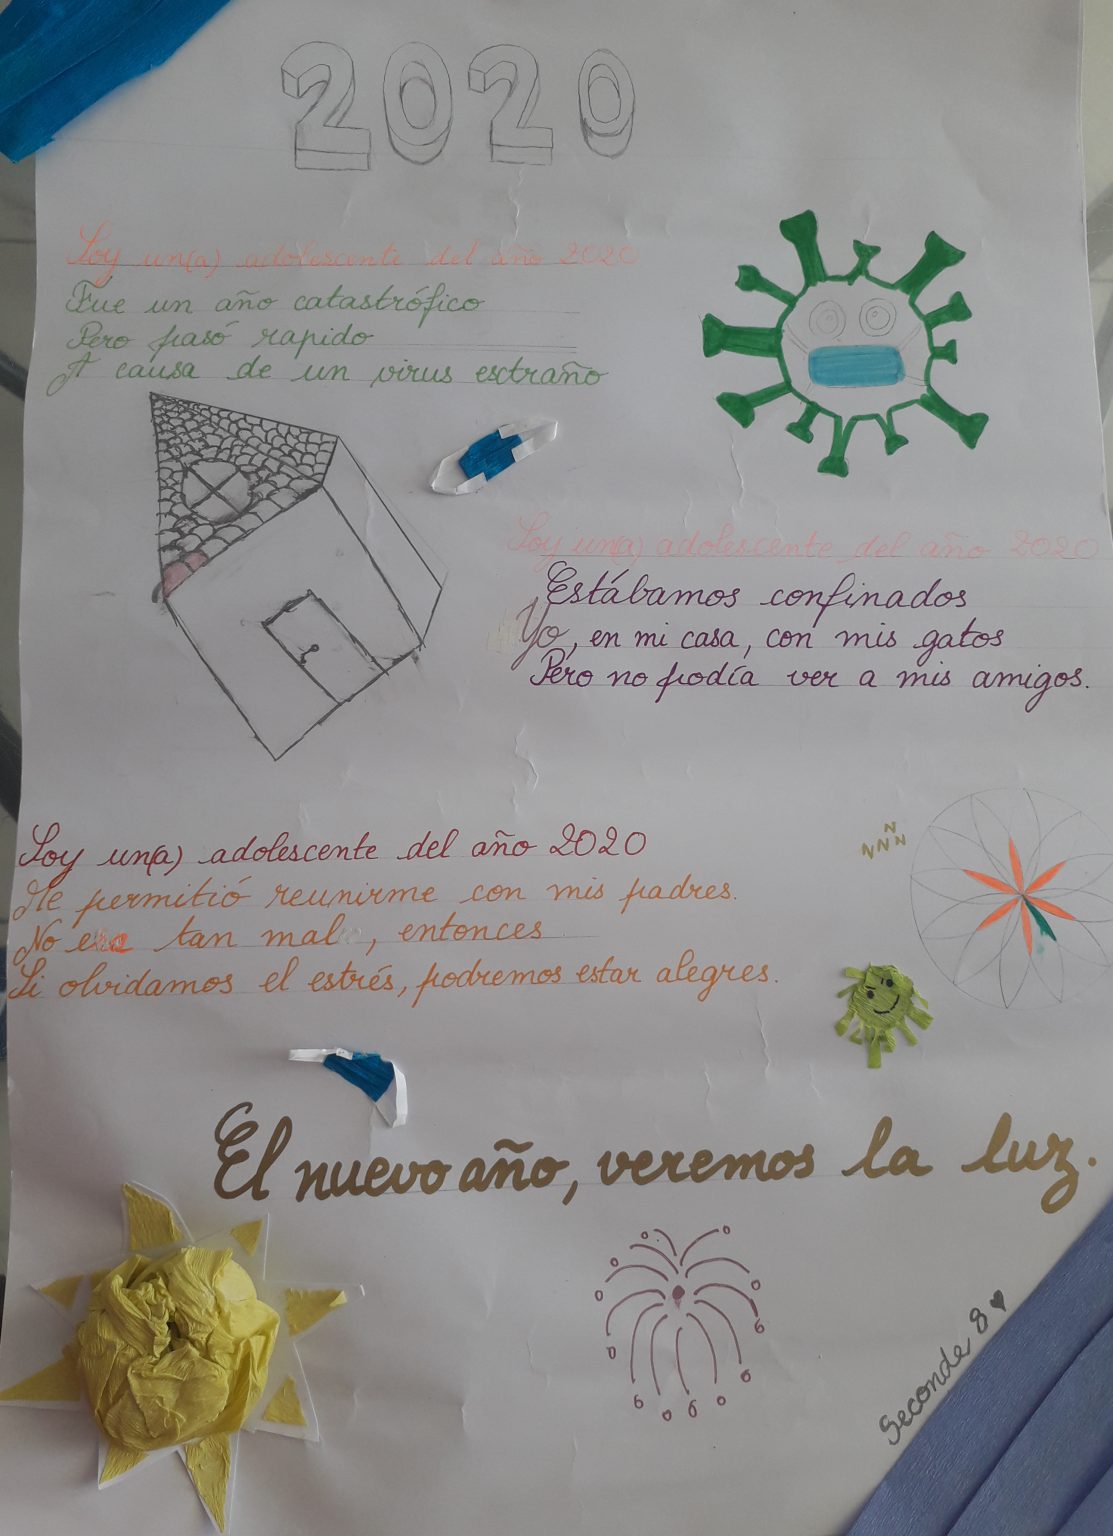 2020
Soy un(a) adolescente del año 2020
Fue un año catastrófico
Pero pasó rapido
A causa de un virus esctraño
Soy un(a) adolescente del año 2020
Estábamos confinados
Yo, en mi casa, con mis gatos
Pero no podía ver a mis amigos.
Soy un(a) adolescente del año 2020
Me permitió reunirme con mis padres.
No era tan mal, entonces
Si olvidamos el estrés, podremos estar alegres.
El nuevo año, veremos la luz.
Seconde 8 ♥